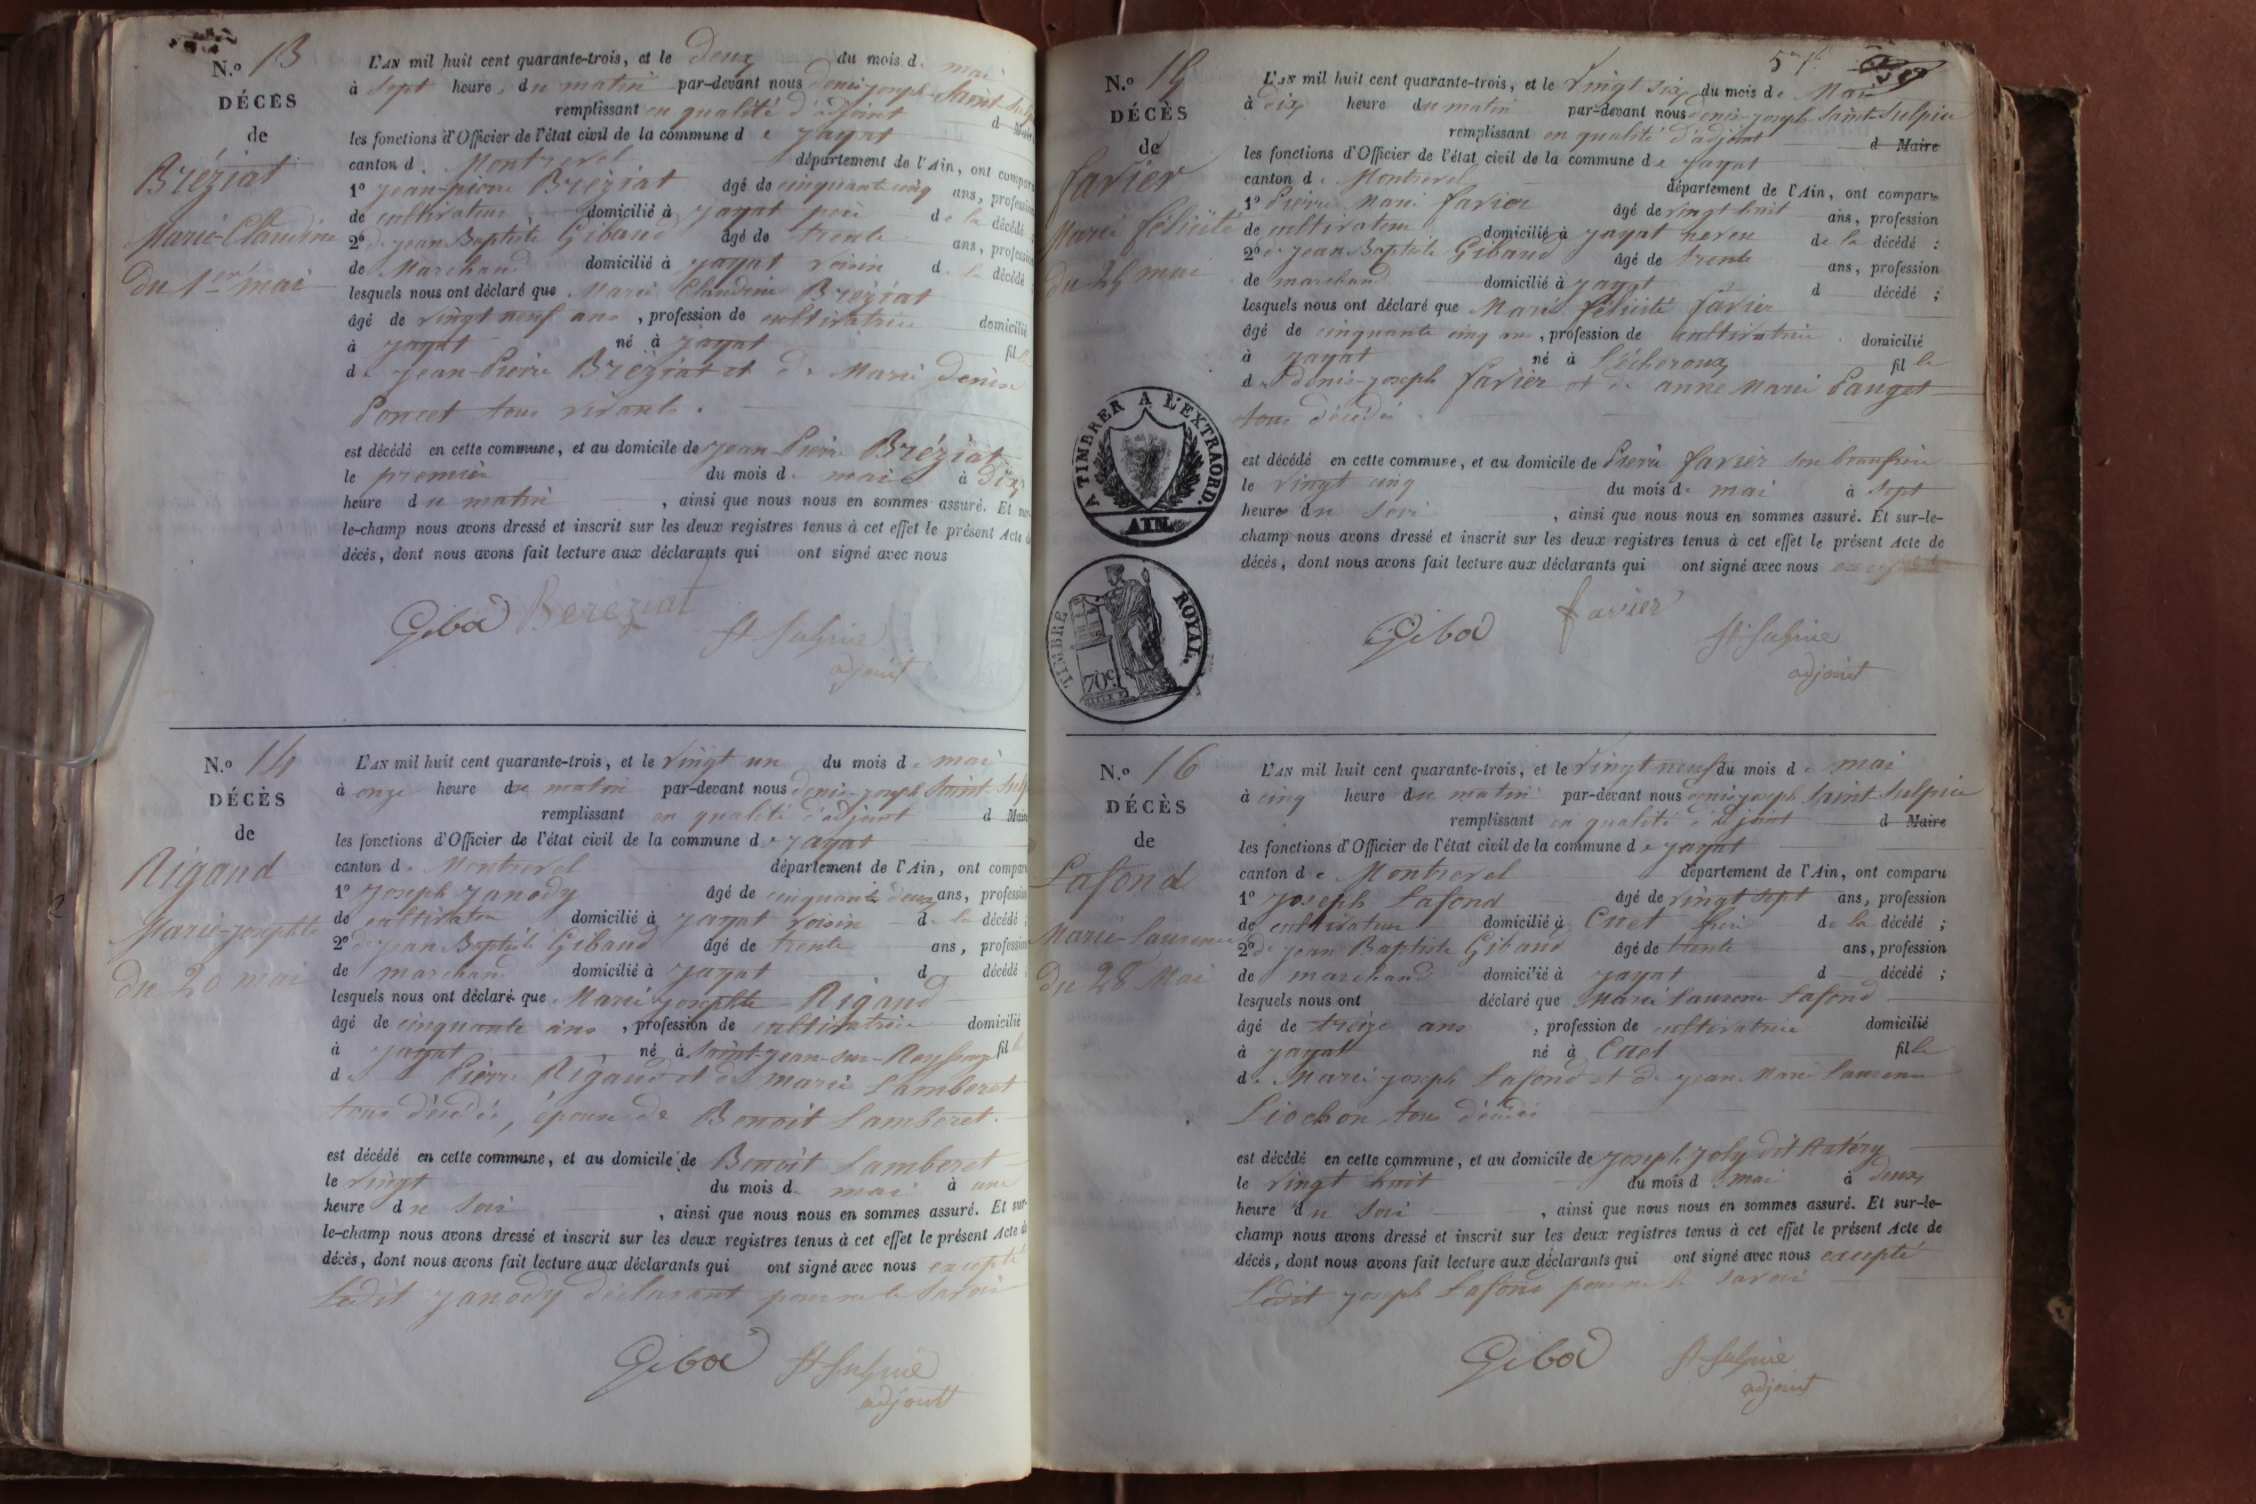 N.º 13
DÉCÈS
de
Bréziat
Marie-Claudine
du 1er mai
L'AN mil huit cent quarante-trois, et le deux du mois de mai
à sept heure du matin par-devant nous denis-joseph Saint-Sulpice
remplissant en qualité d'adjoint d Maire
les fonctions d'Officier de l'état civil de la commune de jayat
canton de Montrevel département de l'Ain, ont comparu
1º jean-pierre Bréziat âgé de cinquante cinq ans, profession
de cultivateur domicilié à jayat père de la décédé ;
2º jean Baptiste Gibaud âgé de trente ans, profession
de Marchand domicilié à jayat voisin de la décédé
lesquels nous ont déclaré que Marie Claudine Bréziat
âgé de vingt neuf ans , profession de cultivatrice domicilié
à jayat né à jayat fille
de jean-Pierre Bréziat et de Marie denise
Poncet tous vivants.
est décédé en cette commune, et au domicile de jean Pierre Bréziat
le premier du mois de mai à dix
heure du matin , ainsi que nous nous en sommes assuré. Et sur-
le-champ nous avons dressé et inscrit sur les deux registres tenus à cet effet le présent Acte de
décès, dont nous avons fait lecture aux déclarants qui ont signé avec nous
Giba Bereziat St Sulpice
adjoint
N.º 14
DÉCÈS
de
Rigaud
Marie-josephte
du 20 mai
L'AN mil huit cent quarante-trois, et le vingt un du mois de mai
à onze heure du matin par-devant nous denis-joseph Saint-Sulp
remplissant en qualité d'adjoint d Maire
les fonctions d'Officier de l'état civil de la commune de jayat
canton de Montrevel département de l'Ain, ont comparu
1º joseph janody âgé de cinquante deux ans, profession
de cultivateur domicilié à jayat voisin de la décédé ;
2º jean Baptiste Gibaud âgé de trente ans, profession
de marchand domicilié à jayat d décédé ;
lesquels nous ont déclaré que Marie josephte Rigaud
âgé de cinquante ans , profession de cultivatrice domicilié
à jayat né à Saint-jean-sur-Reyssouze fille
de Pierre Rigaud et de marie Lamberet
tous décédés, épouse de Benoit Lamberet.
est décédé en cette commune, et au domicile de Benoit Lamberet
le vingt du mois de mai à une
heure du soir , ainsi que nous nous en sommes assuré. Et sur-
le-champ nous avons dressé et inscrit sur les deux registres tenus à cet effet le présent Acte de
décès, dont nous avons fait lecture aux déclarants qui ont signé avec nous excepté
Ledit janody déclarant pour ne le savoir
Giba St Sulpice
adjoint
571
N.º 15
DÉCÈS
de
favier
Marie félicité
du 25 mai
L'AN mil huit cent quarante-trois, et le vingt six du mois de Mai
à dix heure du matin par-devant nous denis-joseph Saint-Sulpice
remplissant en qualité d'adjoint d Maire
les fonctions d'Officier de l'état civil de la commune de jayat
canton de Montrevel département de l'Ain, ont comparu
1º Pierre Marie favier âgé de vingt huit ans, profession
de cultivateur domicilié à jayat neveu de la décédé :
2º jean Baptiste Gibaud âgé de trente ans, profession
de marchand domicilié à jayat d décédé ;
lesquels nous ont déclaré que Marie félicité favier
âgé de cinquante cinq ans , profession de cultivatrice domicilié
à jayat né à Lécheroux fille
de denis-joseph favier et de anne Marie Pauget
tous décédés
est décédé en cette commune, et au domicile de Pierre favier son beaufrère
le vingt cinq du mois de mai à sept
heures du soir , ainsi que nous nous en sommes assuré. Et sur-le-
champ nous avons dressé et inscrit sur les deux registres tenus à cet effet le présent Acte de
décès, dont nous avons fait lecture aux déclarants qui ont signé avec nous
Giba favier St Sulpice
adjoint
A TIMBRER A L'EXTRAORD.
AIN
TIMBRE ROYAL.
70c
N.º 16
DÉCÈS
de
Lafond
Marie-Laurence
du 28 Mai
L'AN mil huit cent quarante-trois, et le vingt neuf du mois de mai
à cinq heure du matin par-devant nous denis-joseph Saint-Sulpice
remplissant en qualité d'adjoint d Maire
les fonctions d'Officier de l'état civil de la commune de jayat
canton de Montrevel département de l'Ain, ont comparu
1º joseph Lafond âgé de vingt sept ans, profession
de cultivateur domicilié à Cuet frère de la décédé ;
2º jean Baptiste Gibaud âgé de trente ans, profession
de marchand domicilié à jayat d décédé ;
lesquels nous ont déclaré que Marie Laurence Lafond
âgé de treize ans , profession de cultivatrice domicilié
à jayat né à Cuet fille
de Marie joseph Lafond et de jean Marie Laurence
Liochon tous décédés
est décédé en cette commune, et au domicile de joseph joly dit
le vingt huit du mois d mai à deux
heure du soir , ainsi que nous nous en sommes assuré. Et sur-le-
champ nous avons dressé et inscrit sur les deux registres tenus à cet effet le présent Acte de
décès, dont nous avons fait lecture aux déclarants qui ont signé avec nous excepté
Ledit joseph Lafond pour ne le savoir
Giba St Sulpice
adjoint